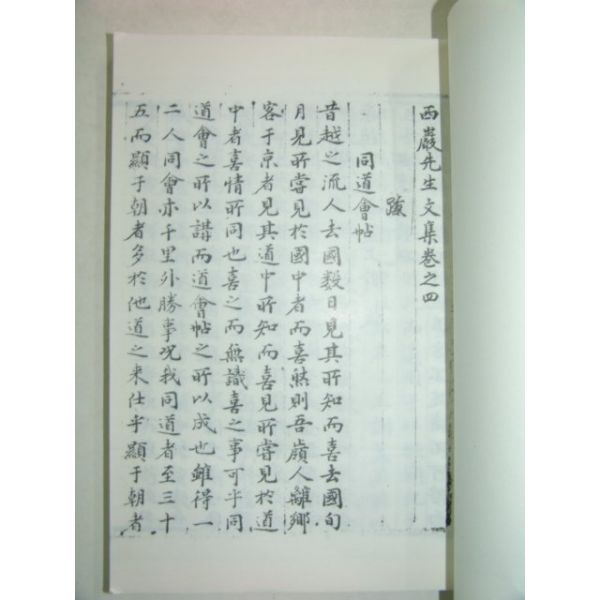 西巖先生文集卷之四
跋
同道會帖
昔越之流人去國數日見其所知而喜去國旬
月見所嘗見於國中者而喜然則吾嶺人離鄉
客于京者見其道中所知而喜見所嘗見於道
中者喜情所同也喜之而無識喜之事可乎同
道會之所以講而道會帖之所以成也雖得一
二人同會亦千里外勝事况我同道者至三十
五而顯于朝者多於他道之來仕半顯于朝者